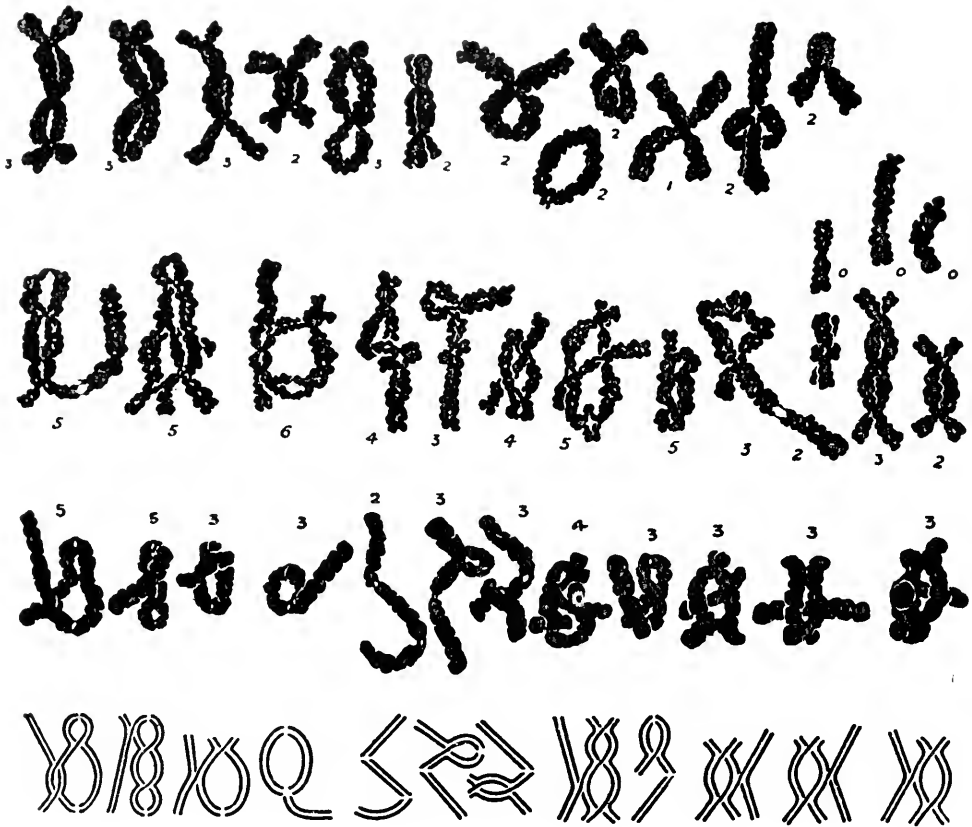 3 3 3 2 3 2 2 2 2 1 2 2
0 0 0
5 5 6 4 3 4 5 5 3 2 3 2
5 5 3 3 2 3 3 4 3 3 3 3